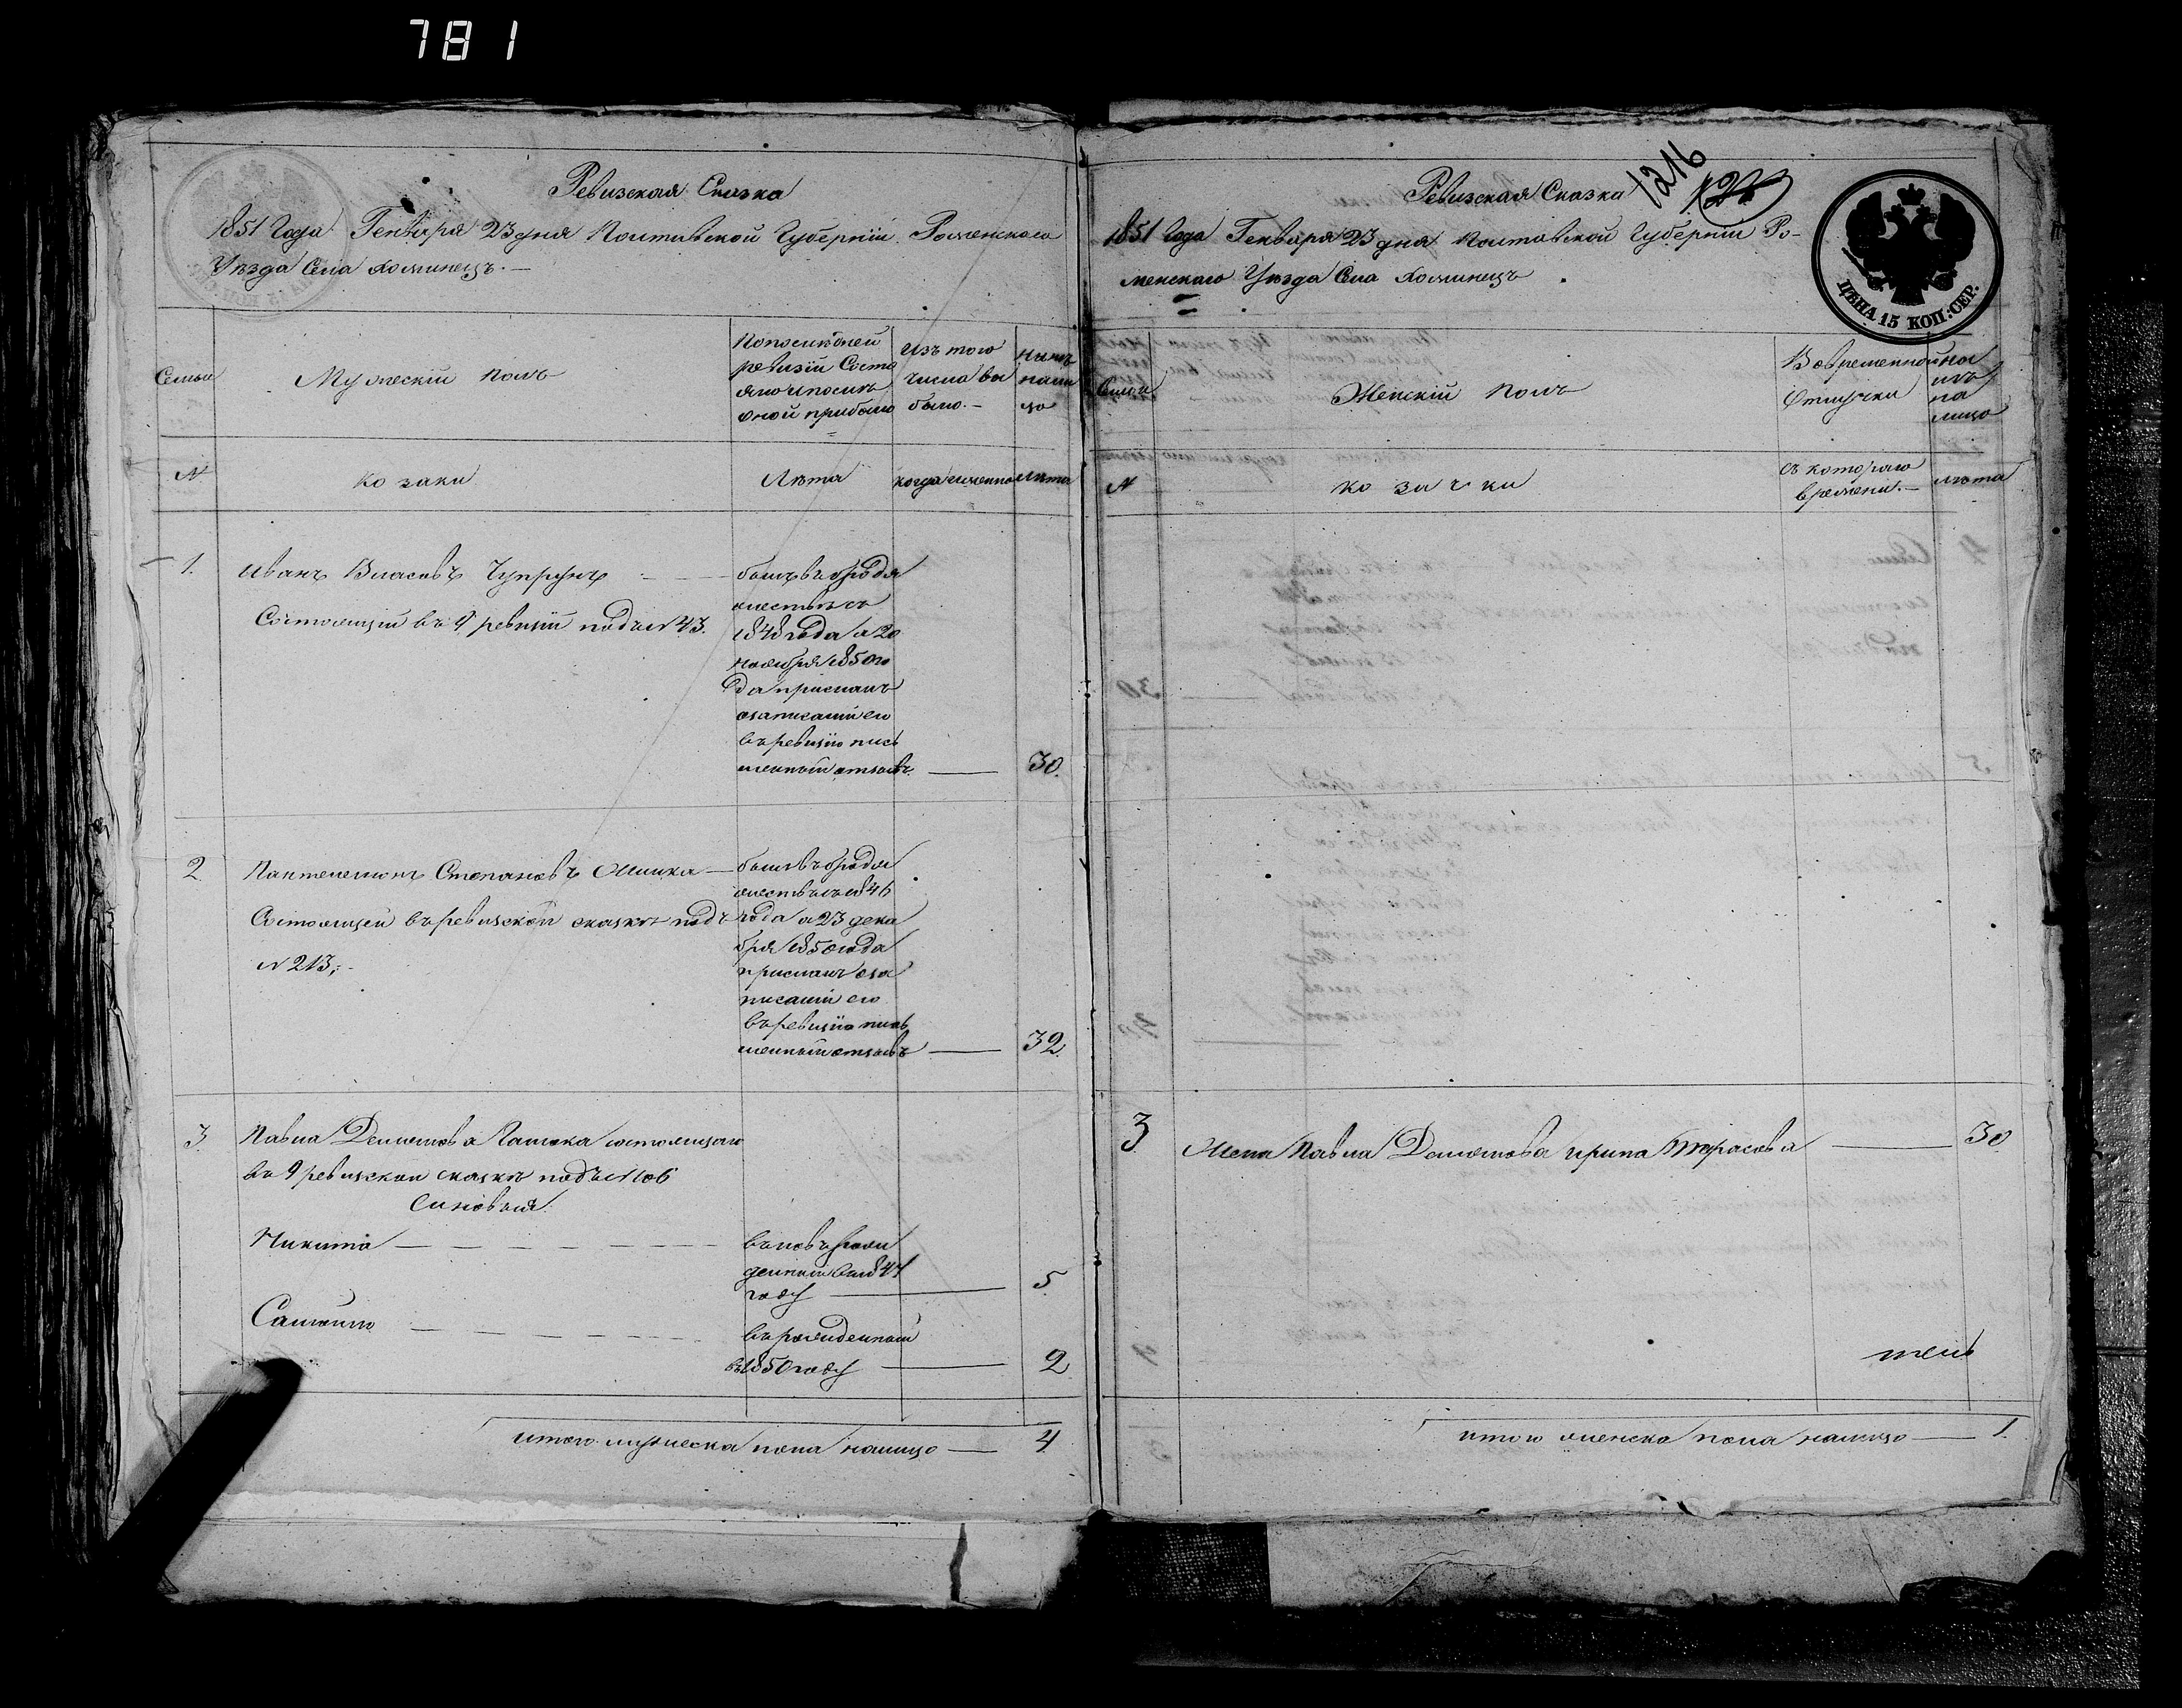 781
Ревизская Сказка
1851 Года Генваря 23 дня Полтавской Губернии Роменского
Уезда Села Хоминець.—
Семьи
Мужескій полъ
По последней
ревизіи Состо
яло и послѣ
оной прибыло
Изъ того
числа вы
было.—
Нынѣ
нали
цо
N
козаки
Лѣта
когда именно
Лѣта
1.
Иванъ Власовъ Чупрунъ
Состоящій въ 9 ревизіи подъ N 43.
былъ въ бродя
жествѣ съ
1848 года а 20
ноября 1850 го
да присланъ
о записаніи его
въ ревизію пись
менный отзывъ — 30.
2.
Пантелемонъ Степановъ —
Состоящей въ ревизской сказке подъ
N 213;-
былъ въ бродя
жествѣ съ 1846
года а 23 дека
бря 1850 года
присланъ о за
писаніи его
въ ревизію пись
менный отзывъ — 32
3.
Павла состоящаго
въ 9 ревизской сказке подъ N 106
Сыновья
Никита
вновь рож
денный въ 184
году — 5.
Самойло
въ рожденный
въ 1850 году — 2
итого мужеска пола налицо — 4
1216
Ревизская Сказка
1851 Года Генваря 23 дня Полтавской Губерніи Ро-
менского Уезда Села Хоминець
ЦѢНА 15 КОП: СЕР.
Семьи
Женскій полъ
Во временной
Отлучки
на
лицо
N
козачки
съ котораго
времени.—
лѣта
3
Жена Павла Ирина Тарасова — 30
итого женска пола налицо — 1.